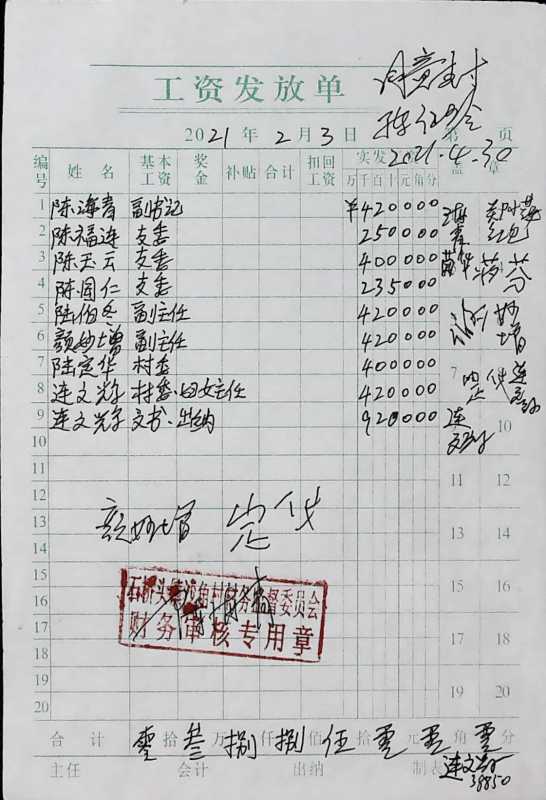 工资发放单
同意支付
2021年2月3日
第 页
2021.4.30
编号 姓名 基本工资 奖金 补贴 合计 扣回工资 实发 盖章
万千百十元角分
1 陈海青 副书记 ¥420000
2 陈福连 支委 250000
3 陈玉云 支委 400000
4 陈国仁 支委 235000
5 陆伯冬 副主任 420000
6 颜妙增 副主任 420000
7 陆定华 村委 400000 7
8 连文 村委.妇女主任 420000
9 连文 文书.出纳 920000 10
10
11 11 12
12
13 颜妙增 定华 13 14
14
15 15 16
16 石桥头镇 村村务监督委员会
17 财务审核专用章
18 17 18
19 19 20
20
合计 零拾叁万捌仟捌佰伍拾零元零角零分
主任 会计 出纳 制表 连文
38850